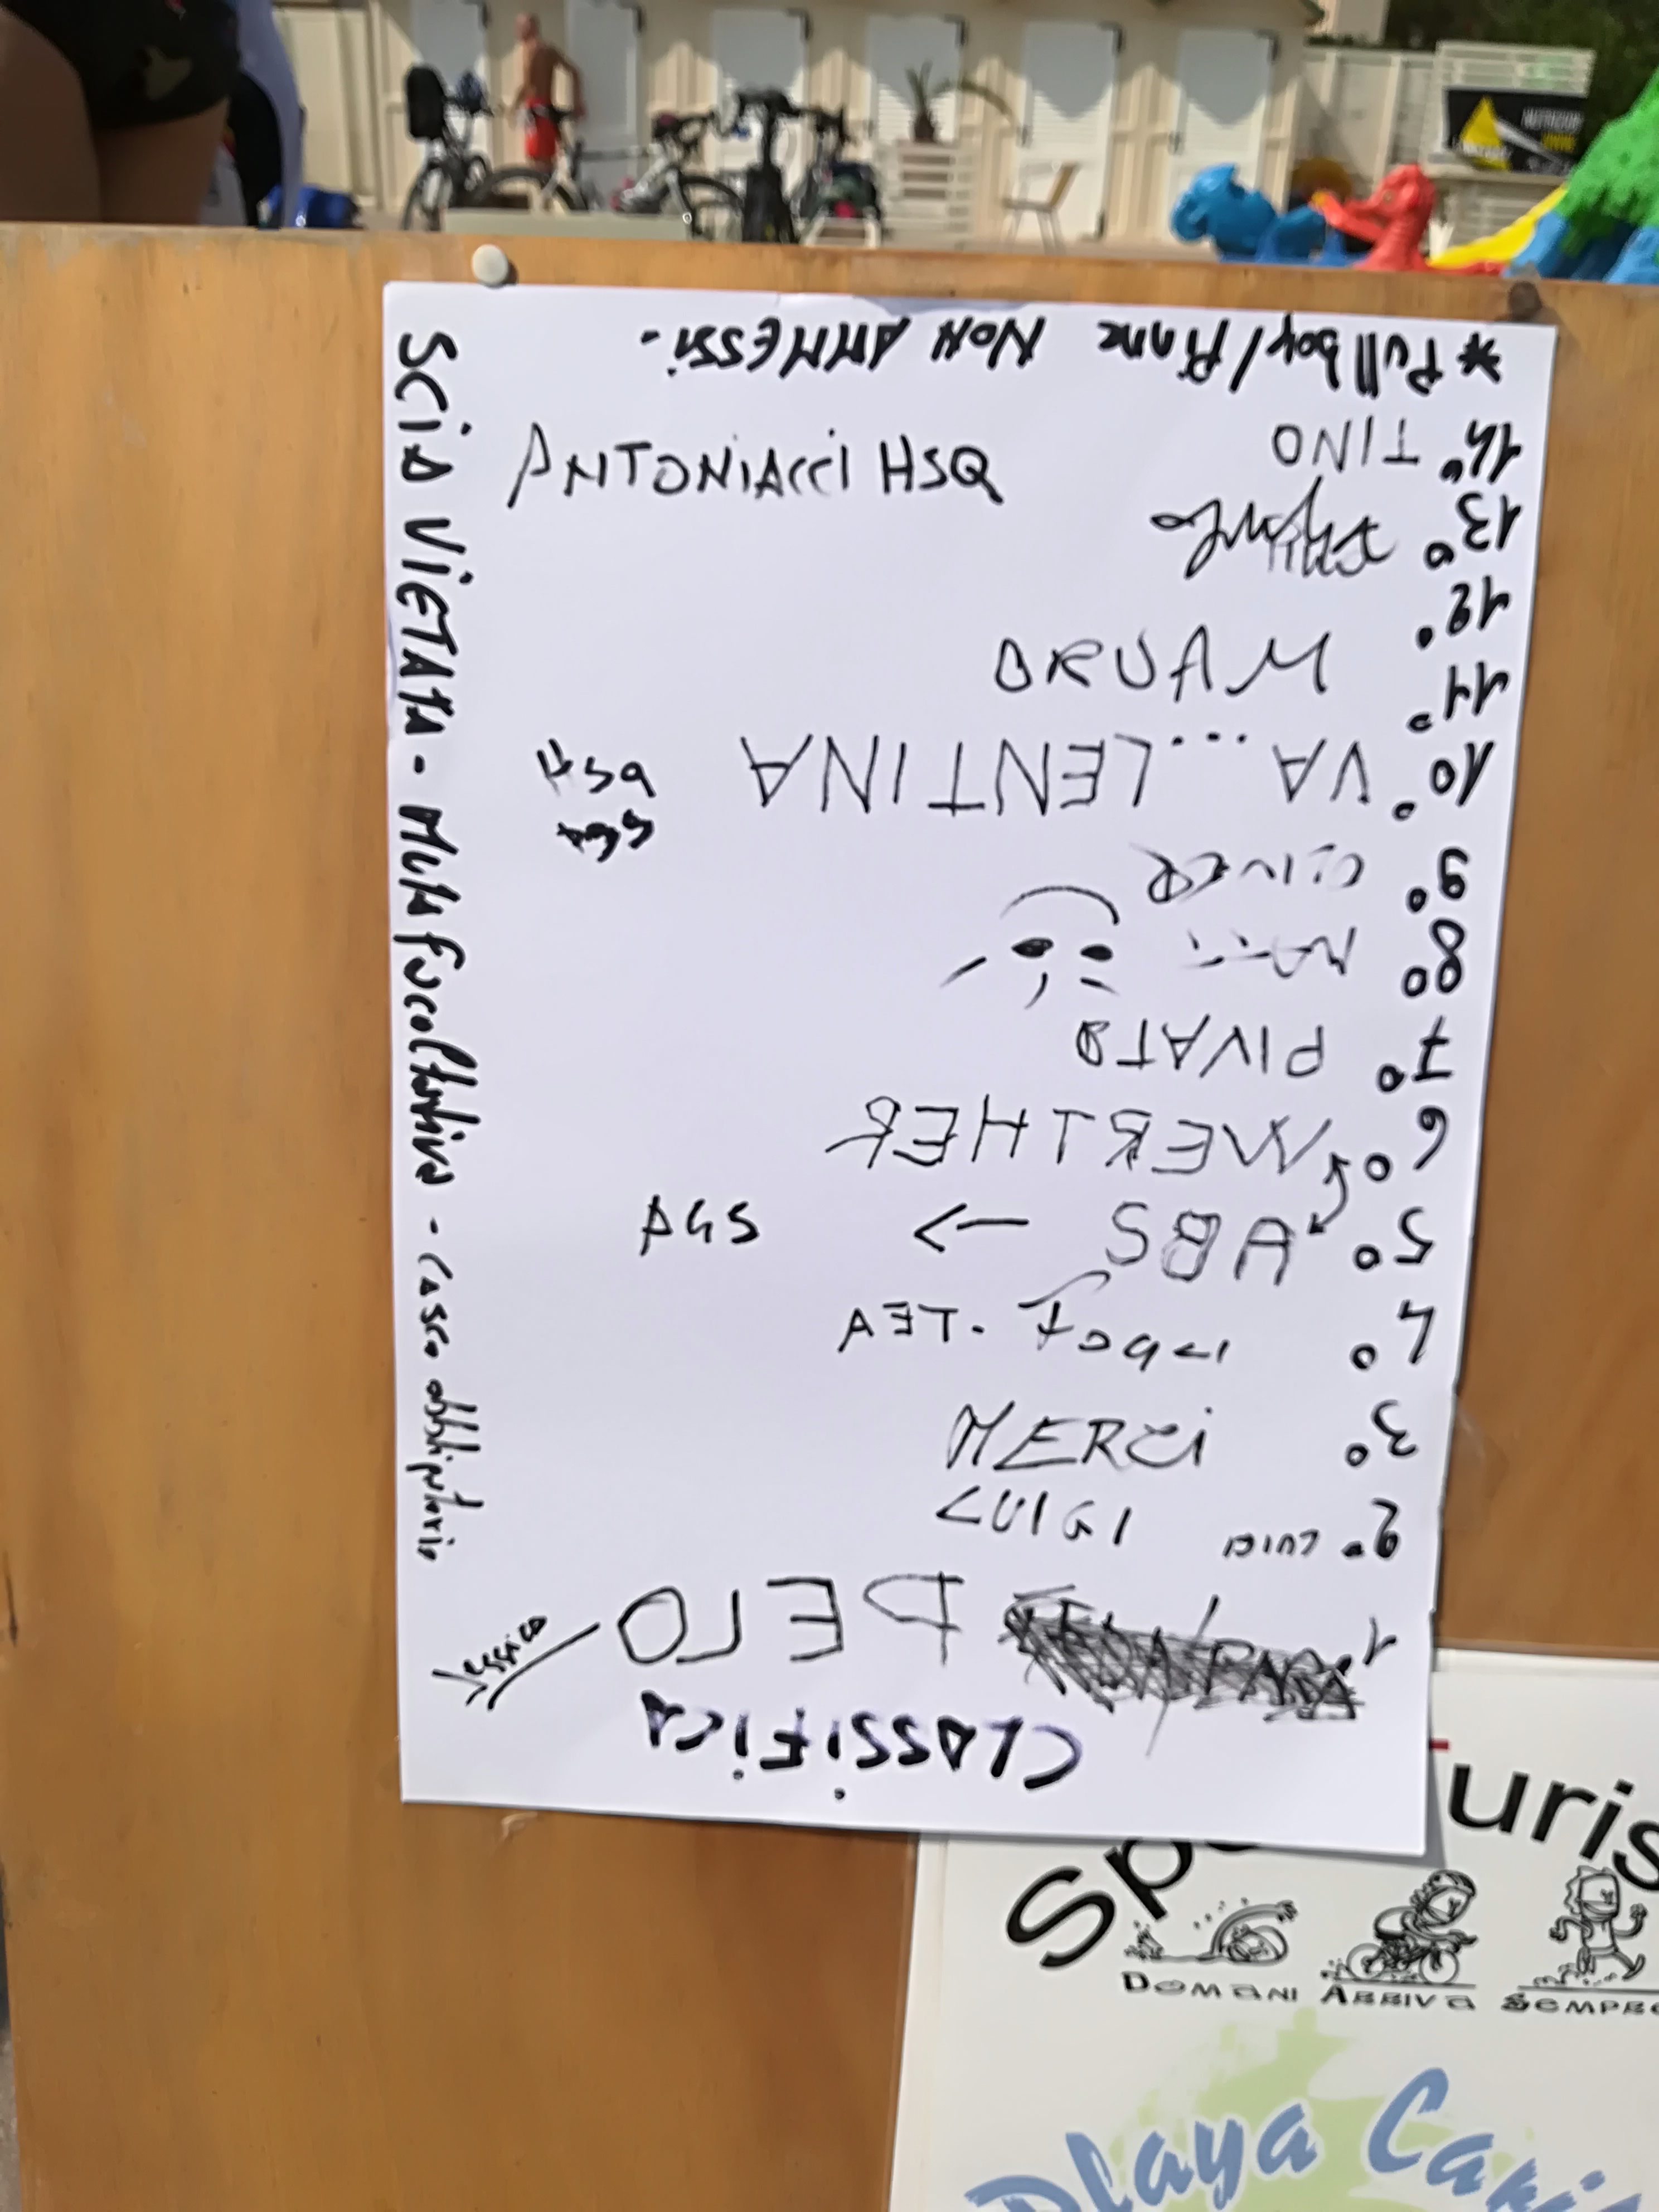 CLASSIFICA
1° DELO
2° LUIGI LUIGI
3° MERZI
4° TEA
5° ABS → AGS
6° WERTHER
7° PIVATO
8°
9° OLIVER
10° VA...LENTINA HSQ
AGS
11° MAURO
12°
13°
14° TINO ANTONIACCI HSQ
* Pull boy/Pinne NON AMMESSi.
SCiA ViETATA - MUTA fACOLTAtivA - CASCO obbligatorio
Sp turis
DOMANI ARRIVA SEMPRE
Playa